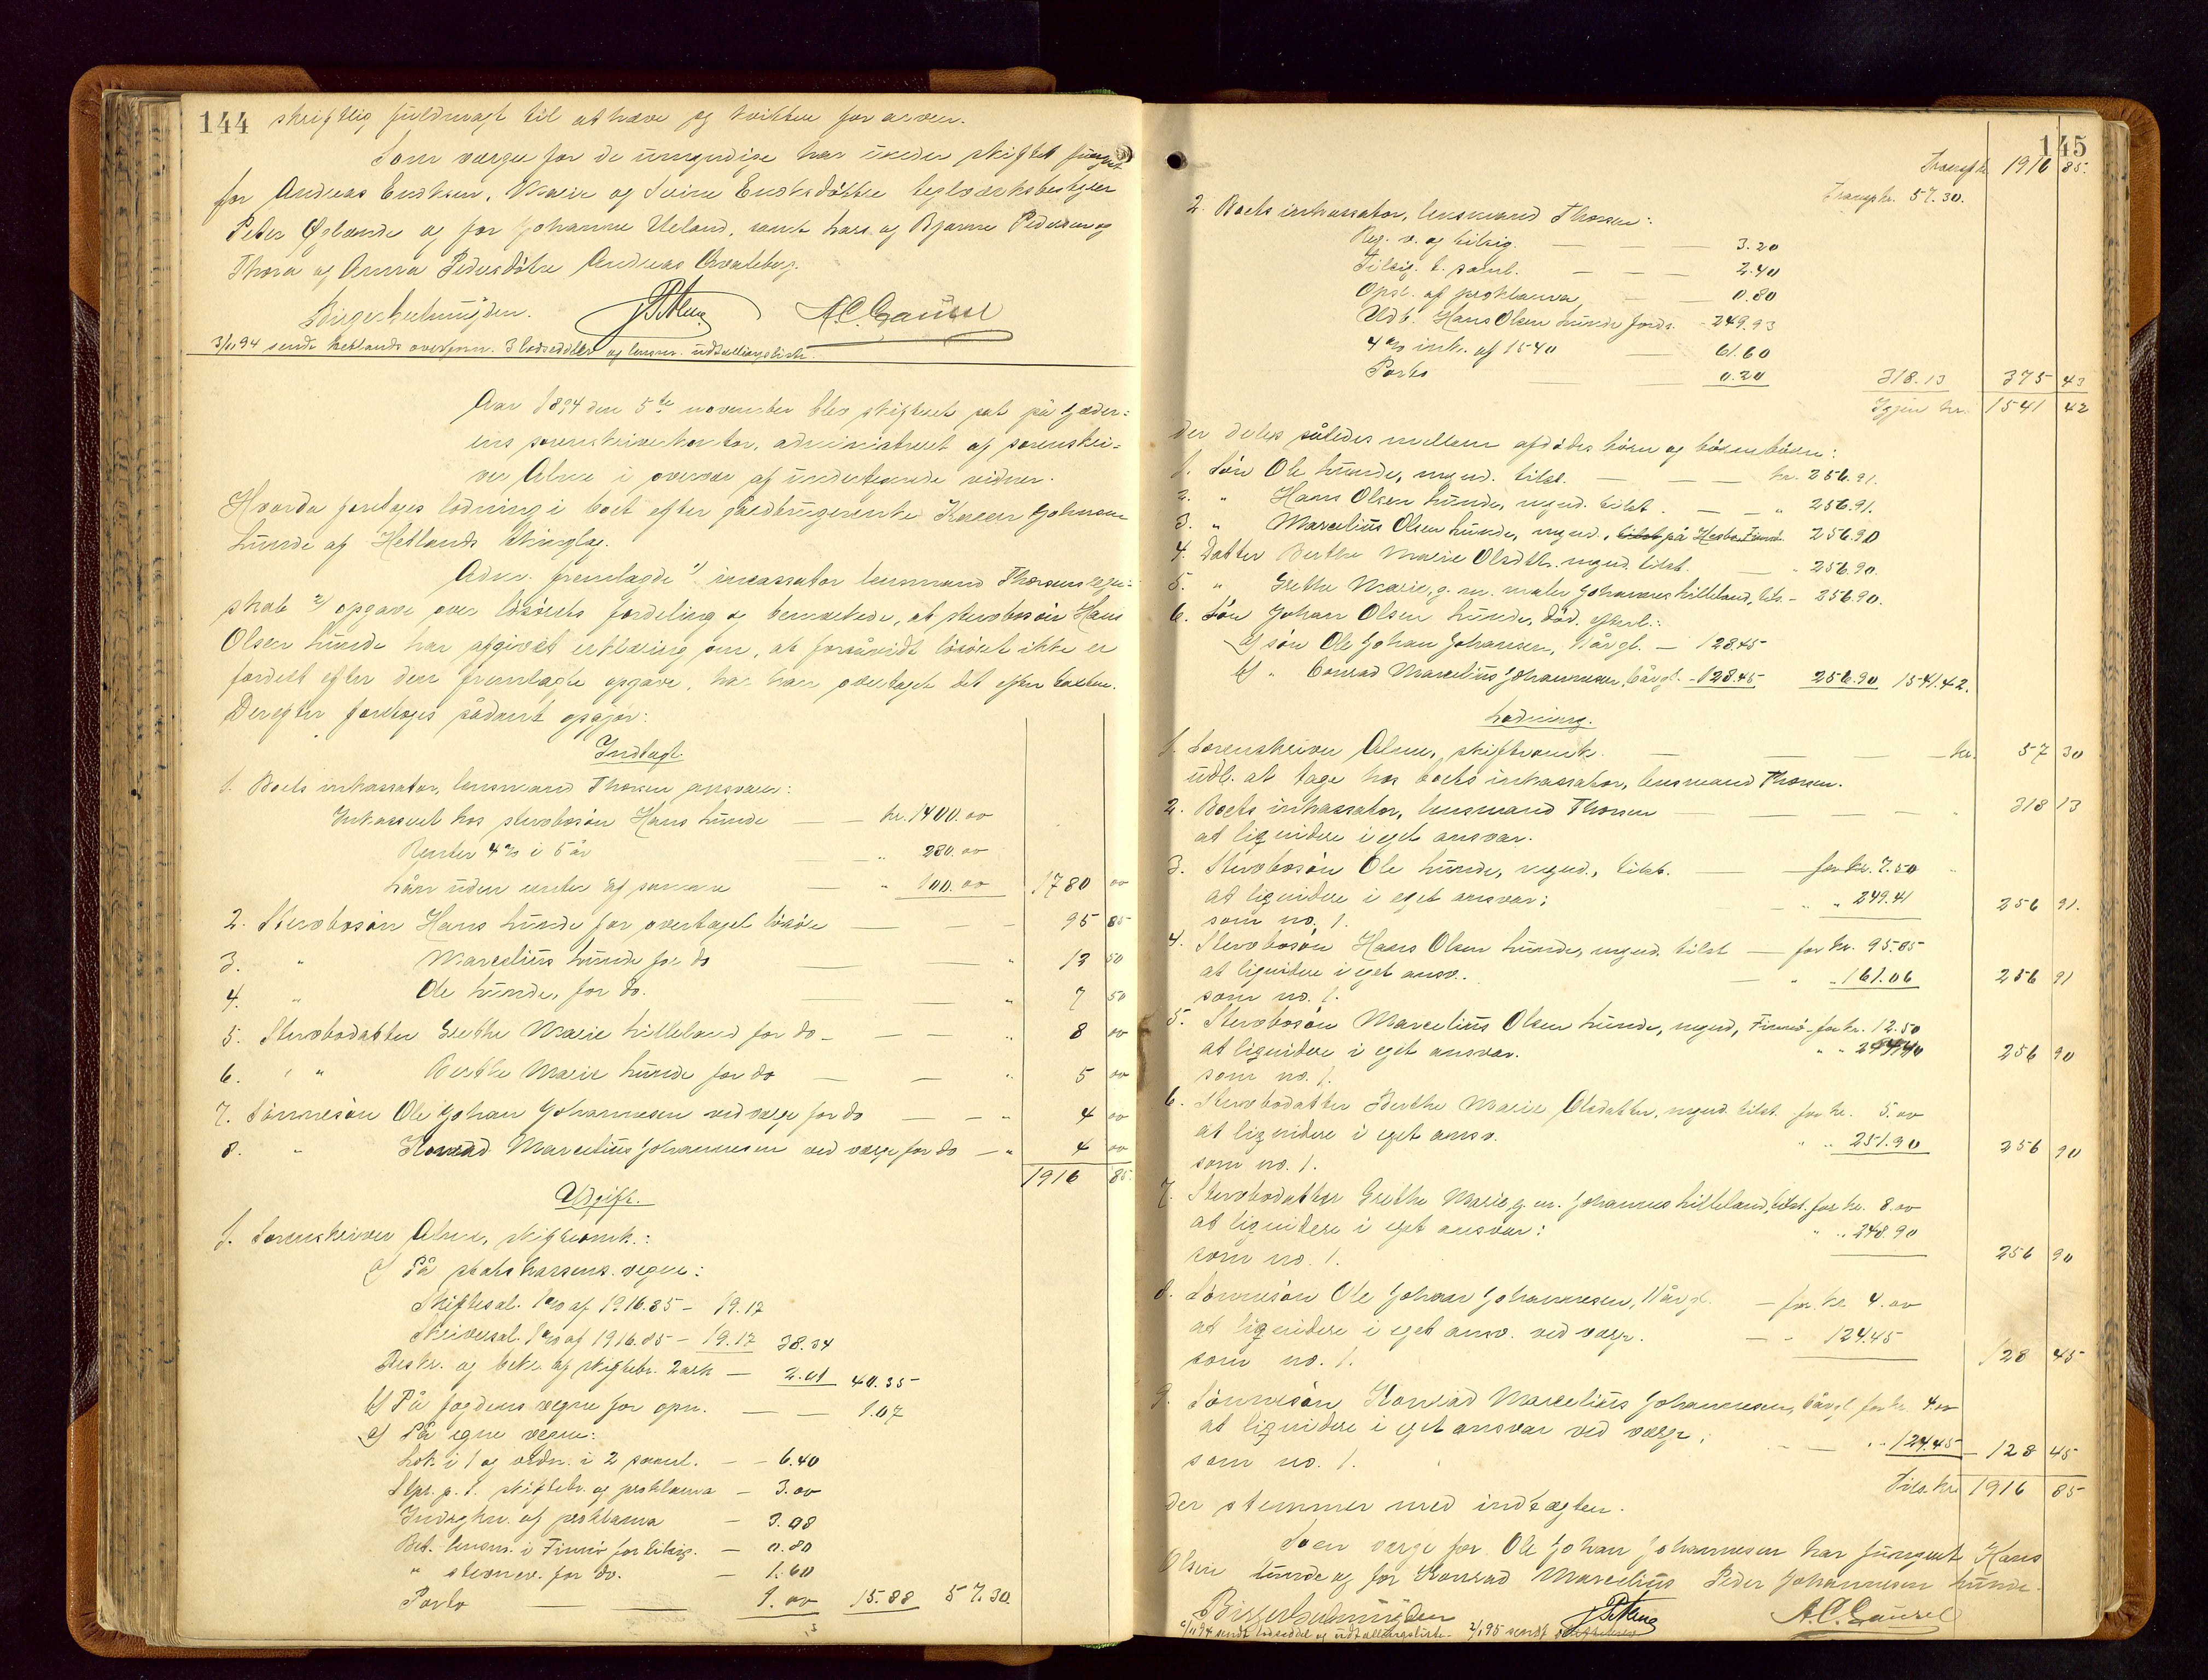 144 skriftlig fuldmagt til at hæve og kvittere for arven.
Som værger for de umyndige har under skiftet fungeret
for Andreas Endresen, Marie og Sirine Endresdøttre teglværksbestyrer
Peder Øglænde og for Johanne Ueland, samt Lars og Bjarne Pedersen og
Thora og Anna Pedersdøtre Andreas
Birger Helmuyden. A.C. Gausel
3/11 94 sendt Hetlands overform. 3 lodsedler og lensm. udtællingsliste.
Aar 1894 den 5te november blev skifteret sat på Jæder-
ens sorenskriverkontor, administreret af sorenskri-
ver i overvær af undertegnede vidner.
Hvorda foretoges lodning i boet efter gårdbrugerenke Karen Johnsen
Lunde af Hetlands thinglag.
Adm. fremlagde 1) incassator lensmand Thorsens regn-
skab 2) opgave over løsørets fordeling og bemærkede, at stervbosøn Hans
Olsen Lunde har afgivet erklæring om, at forsåvidt løsøret ikke er
fordelt efter den fremlagte opgave, har han overtaget det efter taxten.
Derefter foretoges sådant opgjør:
Indtægt.
1. Boets inkassator, lensmand Thorsen ansvarer:
Inkasseret hos stervbosøn Hans Lunde — — kr. 1400.00
Renter 4 % i 5 år " 280.00
Lån uden renter af samme — " 100.00 1780 00
2. Stervbosøn Hans Lunde for overtaget løsøre — — — 95 85
3. " Marcelius Lunde for do — — " 12 50
4. " Ole Lunde, for do. — — " 7 50
5. Stervbodatter Grethe Marie Lilleland for do — — — " 8 00
6. " Berthe Marie Lunde for do — — " 5 00
7. Sønnesøn Ole Johan Johannesen ved værge for do — — " 4 00
8. " Konrad Marcelius Johannesen ved værge for do — " 4 00
1916 85
Udgift.
1. Sorenskriver skifteomk.:
a) På statskassens vegne:
Skiftesal. 1 % af 1916.85 — 19.17
Skriversal. 1 % af 1916.85 — 19.17 38.34
Beskr. og bekr. af skiftebr. 2 ark — 2.01 40.35
b) På fogdens vegne for opn. — — 1.07
c) På egne vegne:
Lok. i 1 og vidn. i 2 saml. — — 6.40
Stpr. p. t. skiftebr. og proklama — 3.00
Indrykn. af proklama — 3.08
Bet. lensm. i Finnø for tilsig. — 0.80
" stevnev. for do. — 1.60
Porto — — 1.00 15.88 57.30.
145
Transp. kr. 1916 85.
Transp. kr. 57.30.
2. Boets inkassator, lensmand Thorsen:
Reg. v. og tilsig. — — — 3.20
Tilsig. t. saml. — — — 2.40
Opsl. af proklama — — 0.80
Udb. Hans Olsen Lunde fords. - 249.93
4 % ink. af 1540 — 61.60
Porto — 0.20 318.13 375 43
Igjen kr. 1541 42
der deles således mellem afdødes børn og børnebørn:
1. Søn Ole Lunde, mynd. tilst. — — — kr. 256.91.
2. " Hans Olsen Lunde, mynd. tilst. — — " 256.91.
3. " Marcelius Olsen Lunde, mynd., 256.90
4. Datter Berthe Marie Olsdtr. mynd. tilst. — - 256.90.
5. " Grethe Marie, g. m. Johannes Lilleland, tils. - 256.90.
6. Søn Johan Olsen Lunde, død. efterl.:
a) søn Ole Johan Johannesen, 11 år gl. — 128.45
b) " Conrad Marcelius Johannesen, 6 år gl. - 128.45 256.90 1541.42.
Lodning.
1. Sorenskriver skifteomk. — — — kr. 57 30
udl. at tage hos boets inkassator, lensmand Thorsen.
2. Boets inkassator, lensmand Thorsen — — — — 318 13
at liquidere i eget ansvar.
3. Stervbosøn Ole Lunde, mynd., tilst. — — for kr. 7.50
at liquidere i eget ansvar; " " 249.41 256 91.
som no. 1.
4. Stervbosøn Hans Olsen Lunde, mynd. tilst — for kr. 95.85
at liquidere i eget ansv. — " " 161.06 256 91
som no. 1.
5. Stervbosøn Marcelius Olsen Lunde, mynd, Finnø - for kr. 12.50
at liquidere i eget ansvar. " " 244.40 256 90
som no. 1.
6. Stervbodatter Berthe Marie Olsdatter, mynd. tilst. for kr. 5.00
at liquidere i eget ansv. " " 251.90 256 90
som no. 1.
7. Stervbodatter Grethe Marie, g. m. Johannes Lilleland, tilst. for kr. 8.00
at liquidere i eget ansvar: " " 248.90
som no. 1. 256 90
8. Sønnesøn Ole Johan Johannesen, 11 år gl. — for kr. 4.00
at liquidere i eget ansv. ved værge. — " 124.45
som no. 1. 128 45
9. Sønnesøn Konrad Marcelius Johannesen, 6 år gl. for kr. 4.00
at liquidere i eget ansvar ved værge; — " " 124.45 — 128 45
som no. 1.
Tils. kr. 1916 85
der stemmer med indtægten.
Som værge for Ole Johan Johannesen har fungeret Hans
Olsen Lunde og for Konrad Marcelius Peder Johannesen Lunde.
Birger Helmuyden A.C. Gausel
6/11 94 sendt lodseddel og udtællingsliste. 2/1 95 sendt